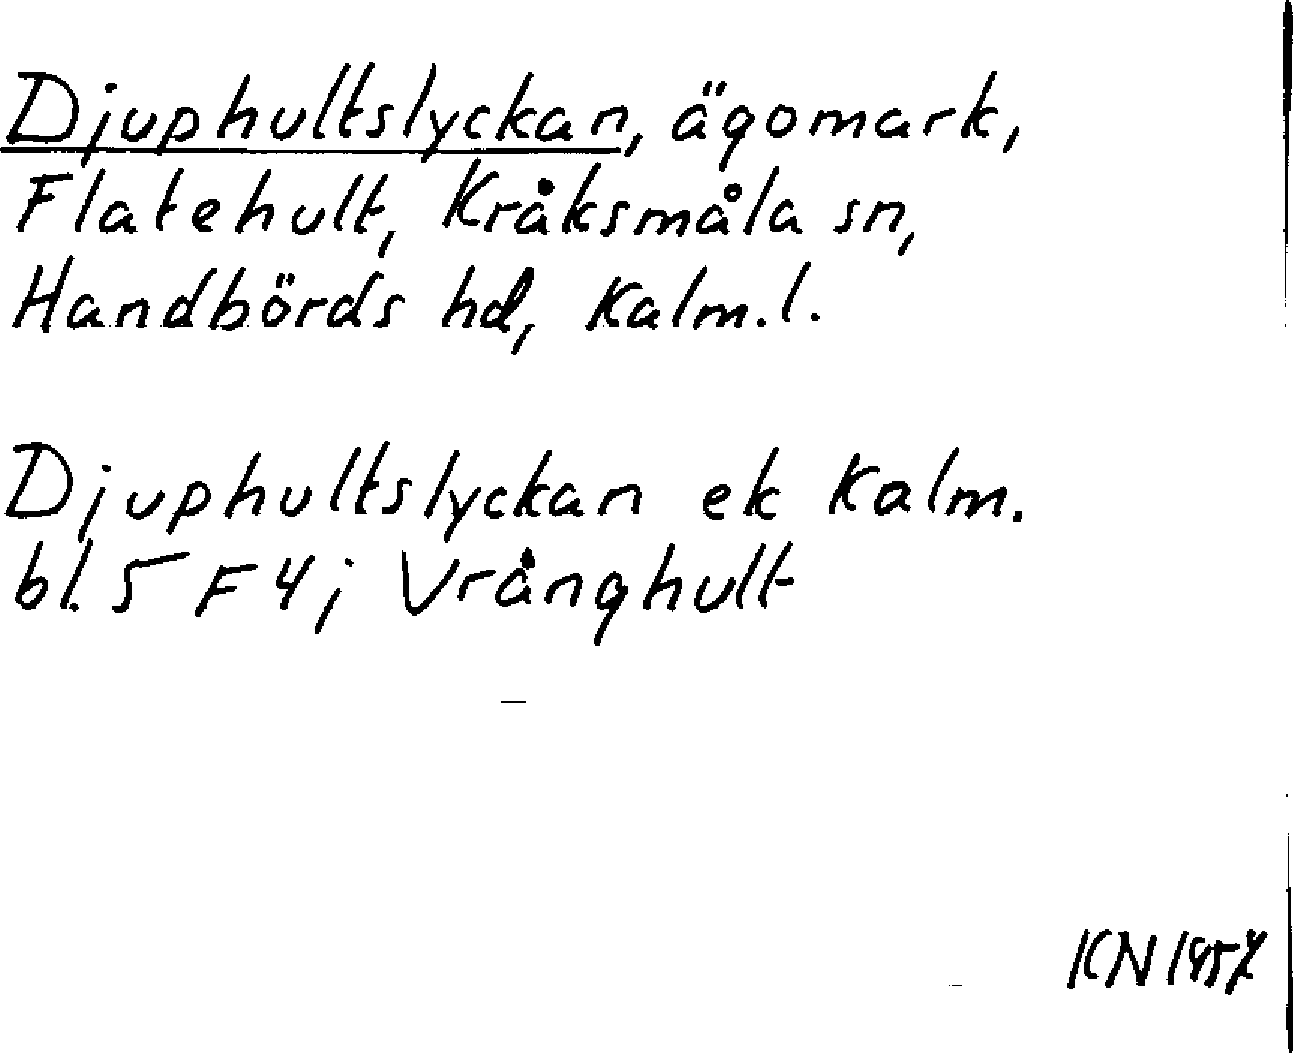 Djuphultslyckan, ägomark,
Flatehult, Kråksmåla sn,
Handbörds hd, Kalm.l.
Djuphultslyckan ek Kalm.
bl. 5 F 4; Vrånghult
KN 1957